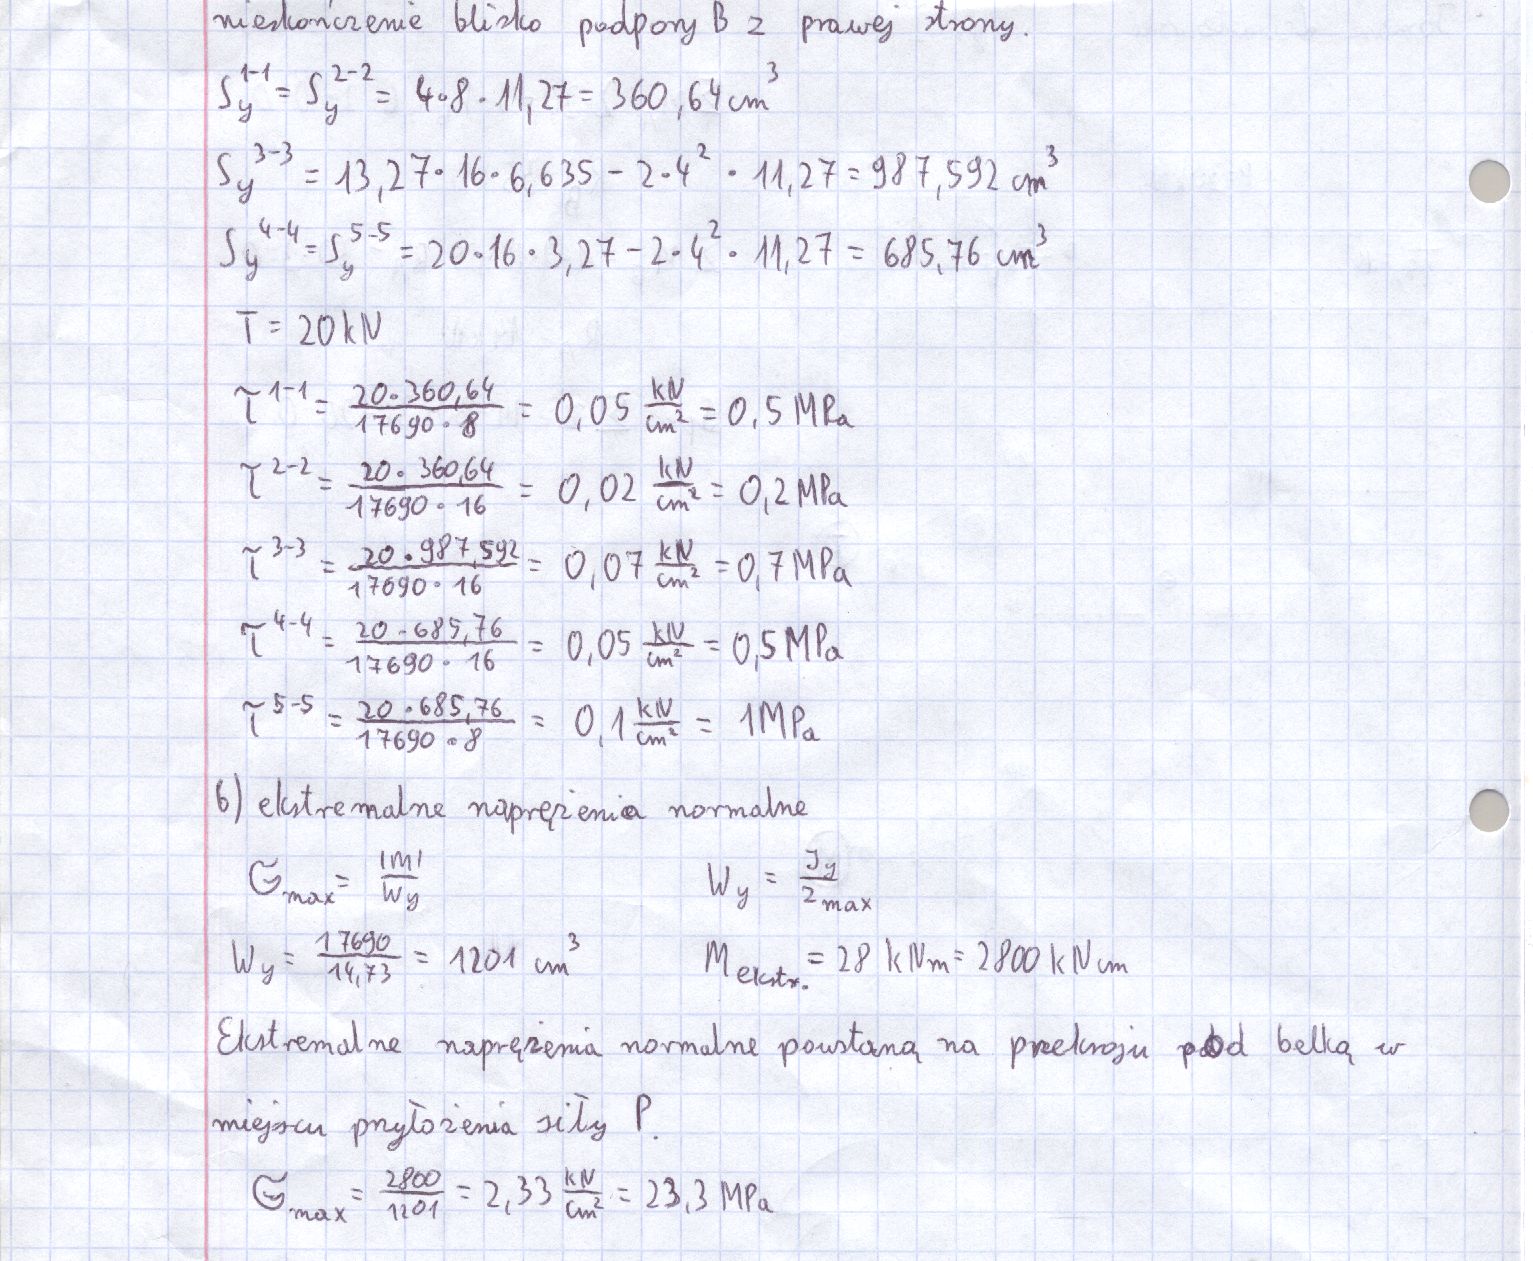 nieskończenie blisko podpory B z prawej strony.
S_y^{1-1} = S_y^{2-2} = 4·8·11,27 = 360,64 cm³
S_y^{3-3} = 13,27·16·6,635 − 2·4²·11,27 = 987,592 cm³
S_y^{4-4} = S_y^{5-5} = 20·16·3,27 − 2·4²·11,27 = 685,76 cm³
T = 20 kN
τ^{1-1} = \frac{20·360,64}{17690·8} = 0,05 \frac{kN}{cm²} = 0,5 MPa
τ^{2-2} = \frac{20·360,64}{17690·16} = 0,02 \frac{kN}{cm²} = 0,2 MPa
τ^{3-3} = \frac{20·987,592}{17690·16} = 0,07 \frac{kN}{cm²} = 0,7 MPa
τ^{4-4} = \frac{20·685,76}{17690·16} = 0,05 \frac{kN}{cm²} = 0,5 MPa
τ^{5-5} = \frac{20·685,76}{17690·8} = 0,1 \frac{kN}{cm²} = 1 MPa
6) ekstremalne naprężenia normalne
σ_{max} = \frac{|M|}{W_y} W_y = \frac{J_y}{z_{max}}
W_y = \frac{17690}{14,73} = 1201 cm³ M_{ekstr.} = 28 kNm = 2800 kNcm
Ekstremalne naprężenia normalne powstaną na przekroju pod belką w
miejscu przyłożenia siły P.
σ_{max} = \frac{2800}{1201} = 2,33 \frac{kN}{cm²} = 23,3 MPa